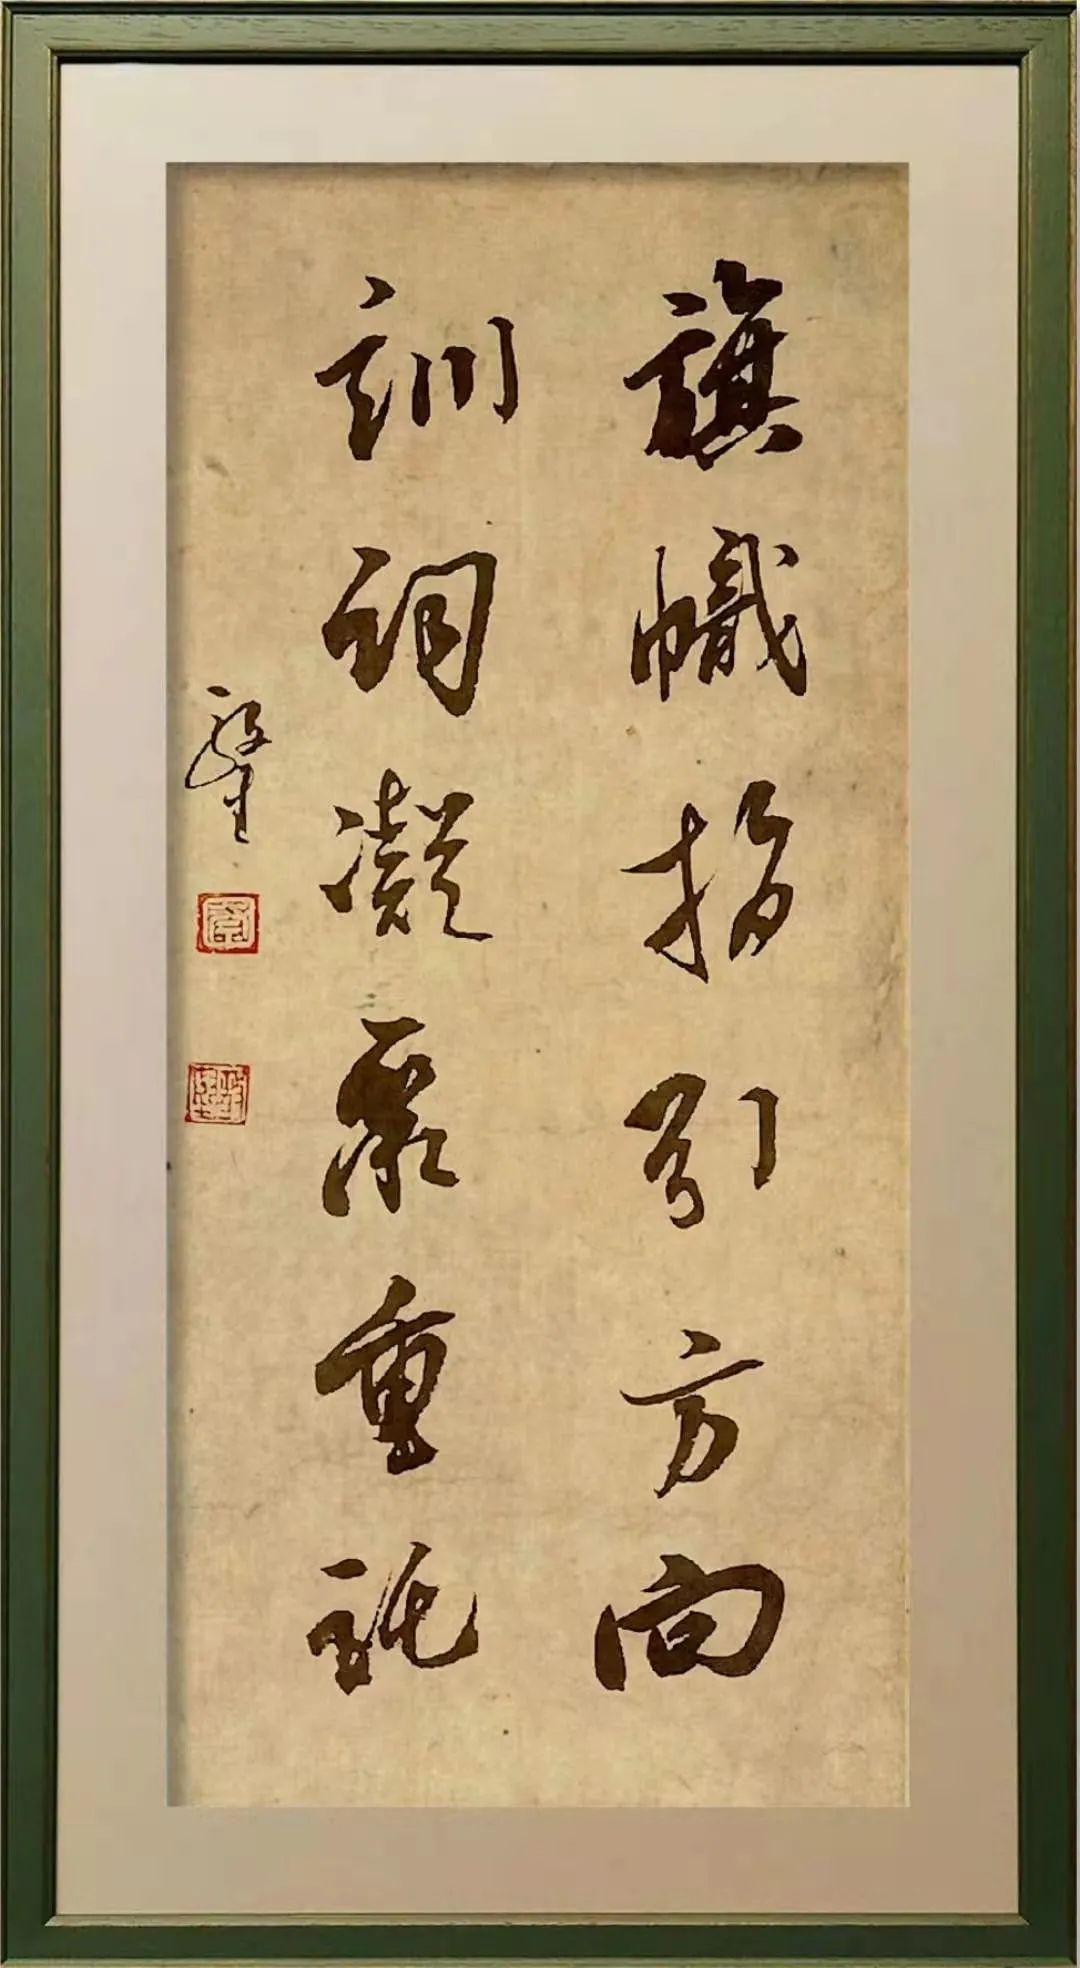 旗幟指引方向
訓詞凝聚重託